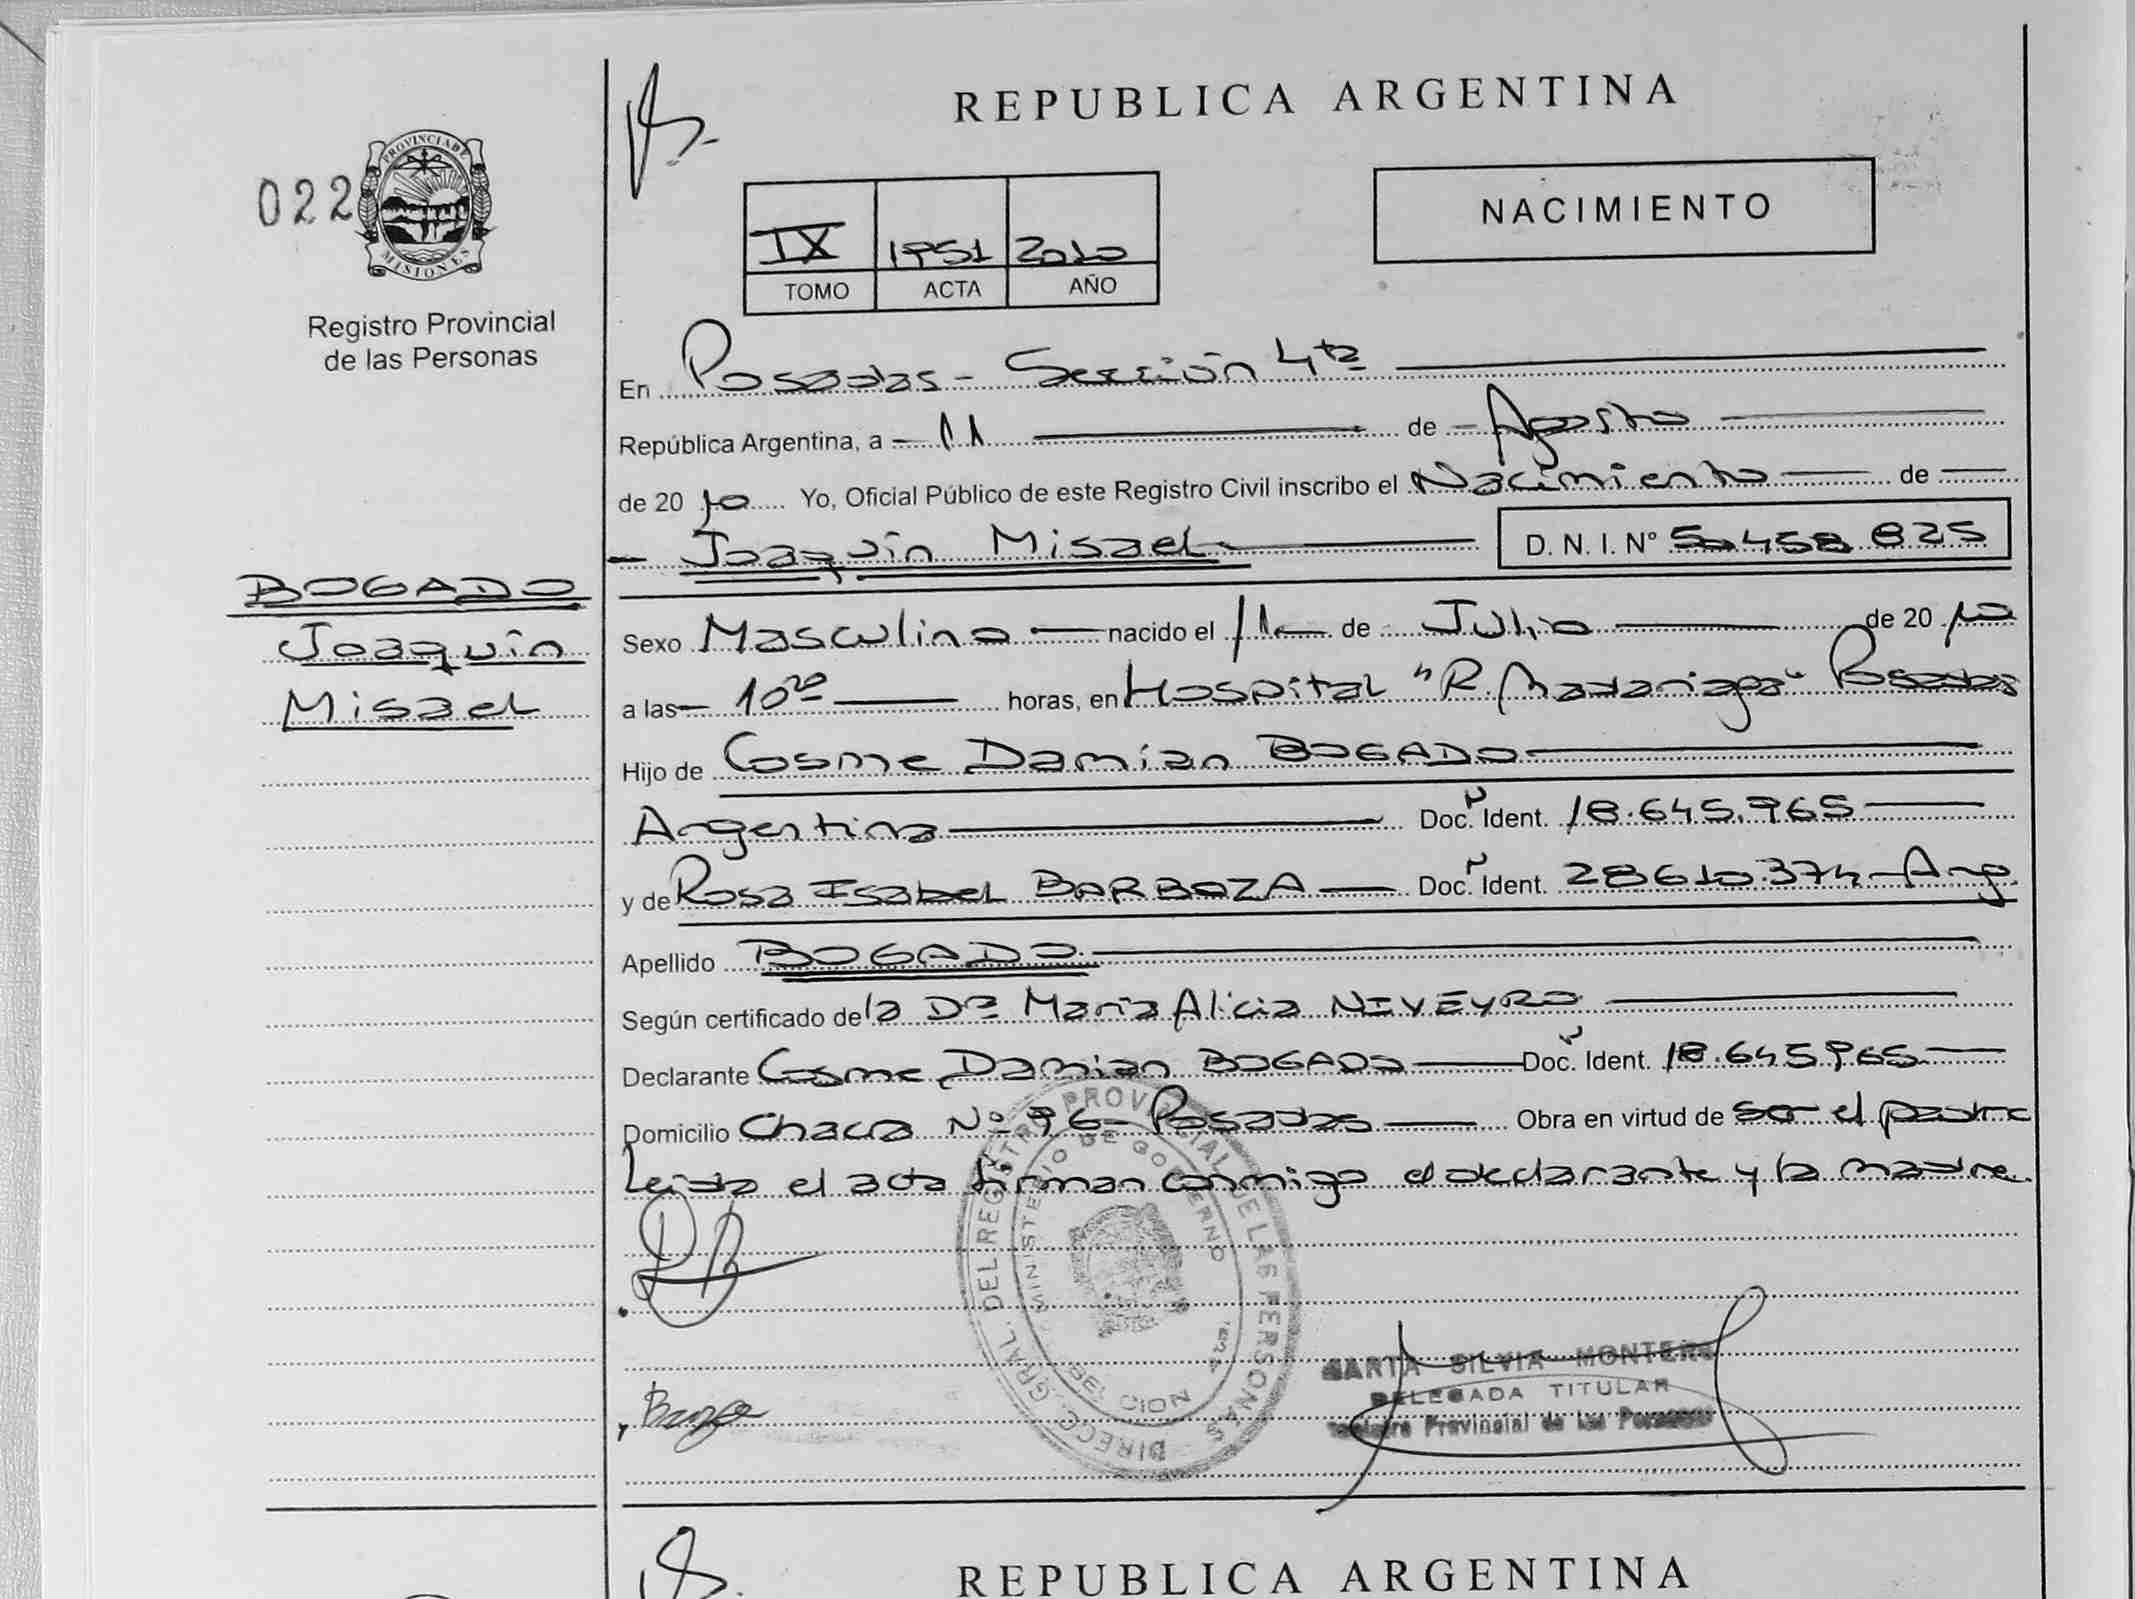 REPUBLICA ARGENTINA
022
PROVINCIA DE
MISIONES
Registro Provincial
de las Personas
IX 1951 2010
TOMO ACTA AÑO
NACIMIENTO
En Posadas - Sección 4ta
República Argentina, a 11 de Agosto
de 20 10 Yo, Oficial Público de este Registro Civil inscribo el Nacimiento de
Joaquín Misael D. N. I. N° 50458825
BOGADO
Joaquín
Misael
Sexo Masculino nacido el 11 de Julio de 20 10
a las 10 20 horas, en Hospital "R. Madariaga" Posadas
Hijo de Cosme Damian BOGADO
Argentina Doc. Ident. 18.645.965
y de Rosa Isabel BARBOZA Doc. Ident. 28610374 - Arg.
Apellido BOGADO
Según certificado de la Dra María Alicia NIVEYRO
Declarante Cosme Damian BOGADO Doc. Ident. 18.645965
Domicilio Chacra N° 96 - Posadas Obra en virtud de ser el padre
Leida el acta firman conmigo el declarante y la madre.
DIRECC. GRAL. DEL REGISTRO PROVINCIAL DE LAS PERSONAS
MINISTERIO DE GOBIERNO
MARTA SILVIA MONTERO
DELEGADA TITULAR
Registro Provincial de las Personas
REPUBLICA ARGENTINA